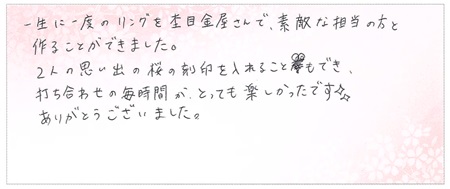 一生に一度のリングを杢目金屋さんで、素敵な担当の方と
作ることができました。
2人の思い出の桜の刻印を入れることもでき、
打ち合わせの毎時間が、とっても楽しかったです
ありがとうございました。